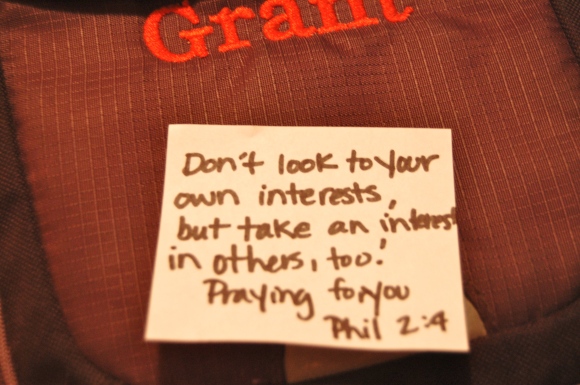 Grant
Don't look to your
own interests,
but take an interest
in others, too!
Praying for you
Phil 2:4